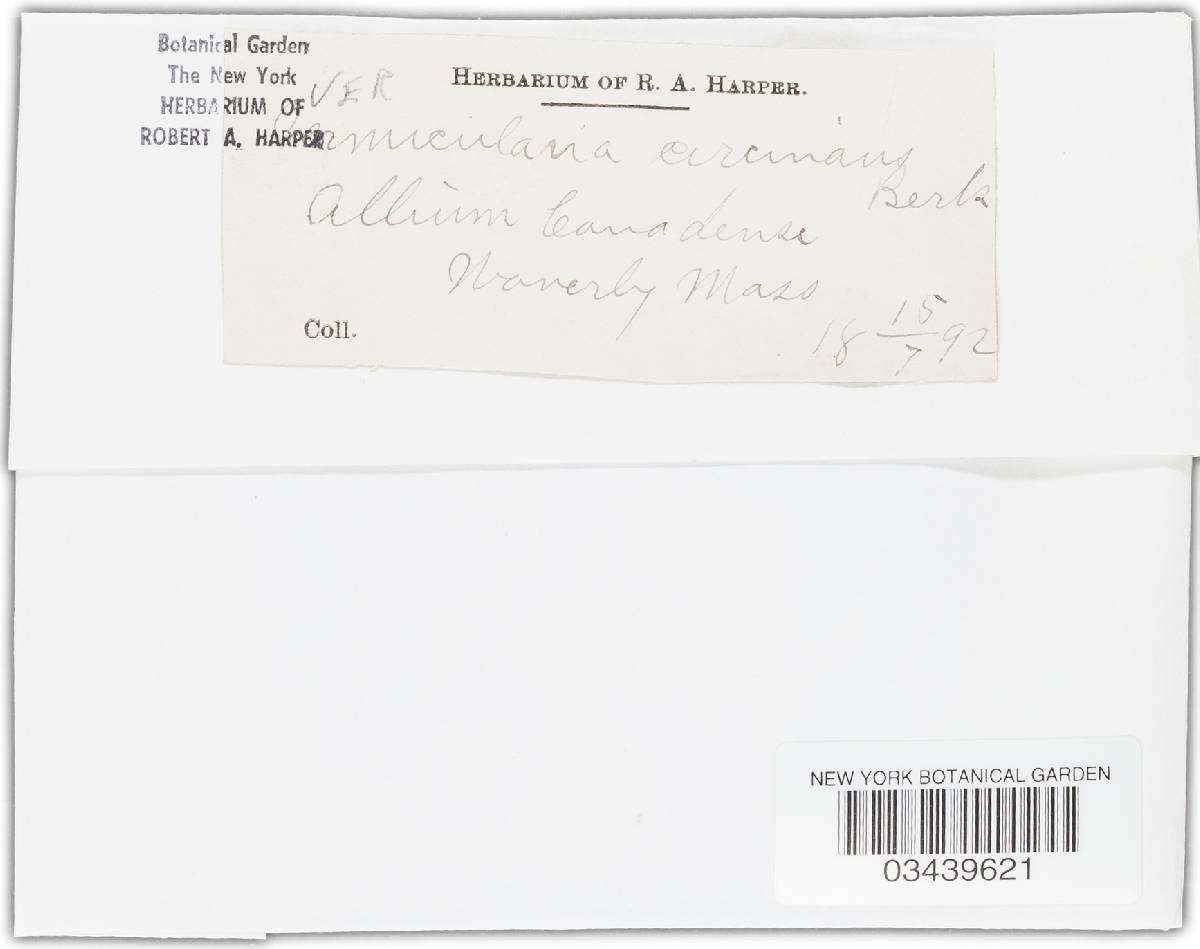 Botanical Garden
The New York
HERBARIUM OF
ROBERT A. HARPER
HERBARIUM OF R. A. HARPER.
VER
Vermicularia circinans
Berk
Allium Canadense
Waverly Mass
Coll.
18 15/7 92
NEW YORK BOTANICAL GARDEN
03439621